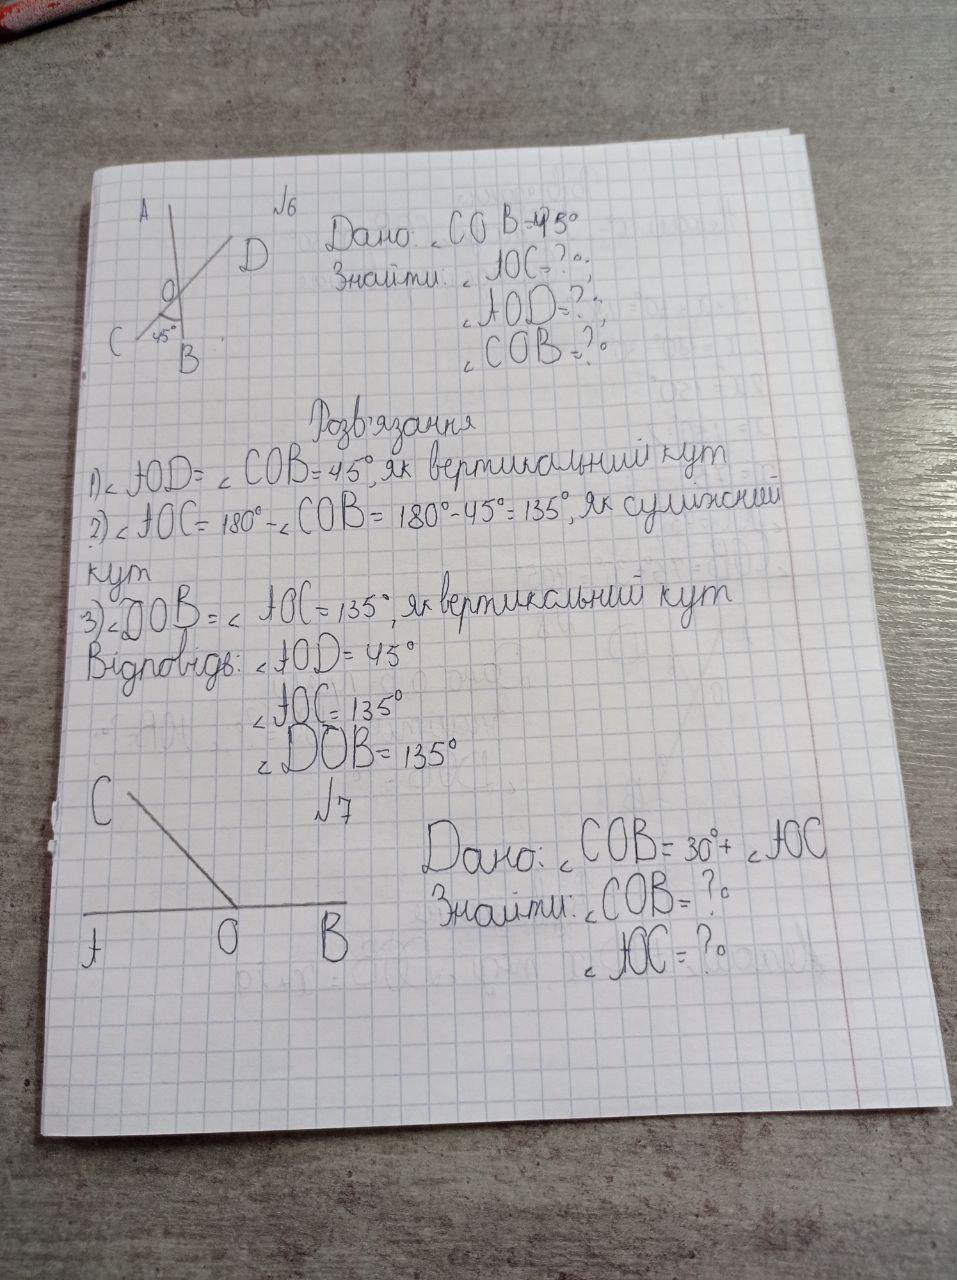 №6
A
D
O
C 45° B
Дано: ∠COB=45°
Знайти: ∠AOC=?°;
∠AOD=?;
∠COB=?°
Розв'язання
1) ∠AOD= ∠COB=45°, як вертикальний кут
2) ∠AOC= 180°-∠COB= 180°-45°=135°, як суміжний
кут
3) ∠DOB= ∠AOC=135°, як вертикальний кут
Відповідь: ∠AOD=45°
∠AOC=135°
∠DOB=135°
№7
C
A O B
Дано: ∠COB=30°+ ∠AOC
Знайти: ∠COB=?°
∠AOC=?°